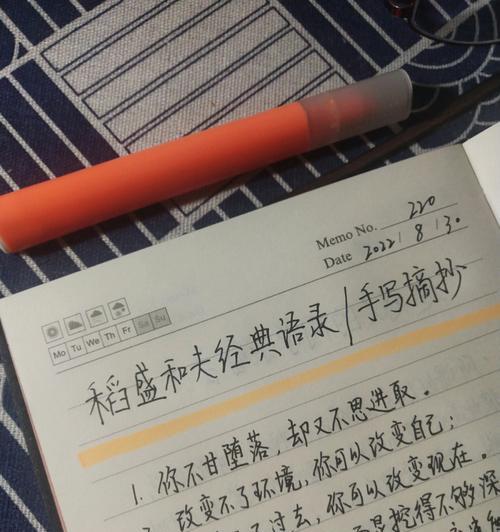 Memo No. 220
Date 2022 / 8 / 30
Mo Tu We Th Fr Sa Su
稻盛和夫经典语录 / 手写摘抄
1. 你不甘堕落，却又不思进取。
改变不了环境，你可以改变自己；
过去，你可以改变现在。
挖得不够深